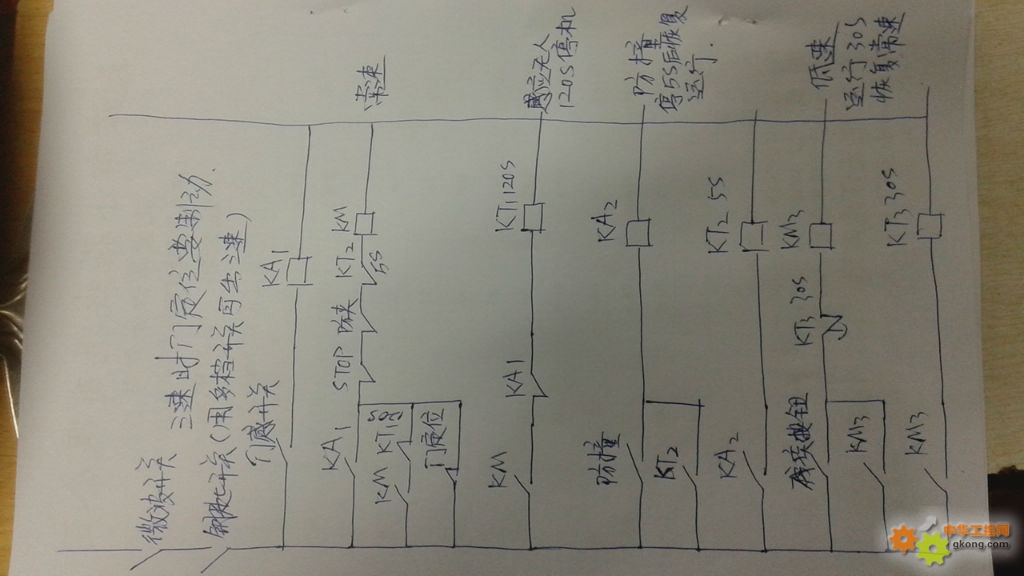 微波开关
钥匙开关(用多档开关可出三速)
三速时门定位要制动.
门感开关
KA1
常速
KA1
STOP
防夹
KT2
5S
KM
KM
KT1
门定位
感应无人
120S停机
KM
KA1
KT1 120S
防撞
停5S后恢复
运行.
防撞
KA2
KT2
KA2
KT2 5S
低速
运行30S
恢复常速
KT3 30S
KM3
KM3
KM3
KT3 30S
中华工控网
gkong.com